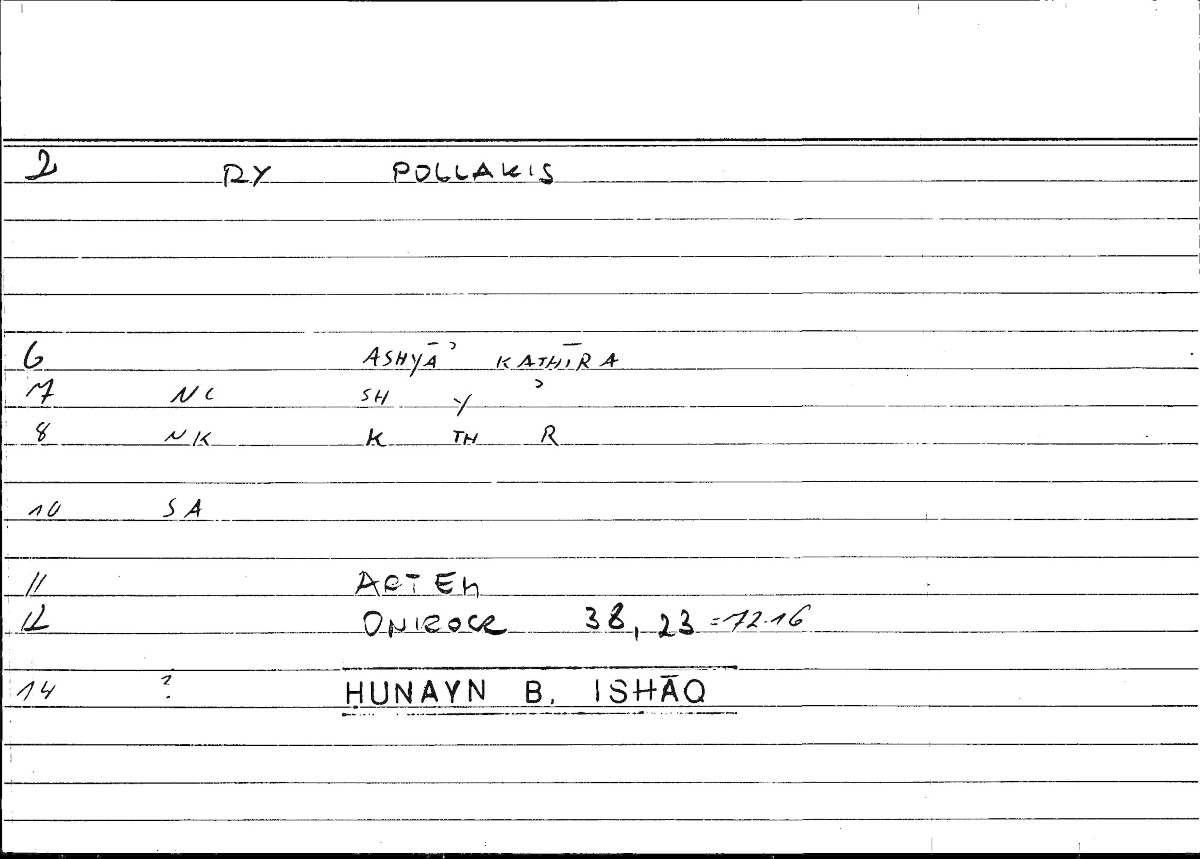 2 RY POLLAKIS
6 ASHYĀʾ KATHĪRA
7 NC SH Y ʾ
8 NK K TH R
10 SA
11 ARTEM
12 ONIROCR 38, 23 =72.16
14 ? HUNAYN B. ISHĀQ